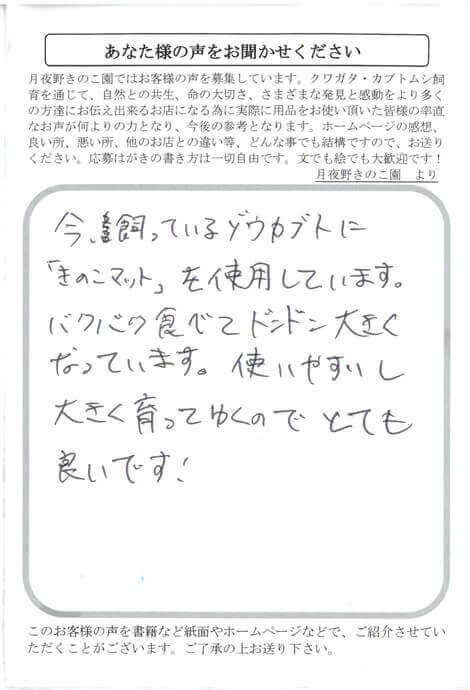 あなた様の声をお聞かせください
月夜野きのこ園ではお客様の声を募集しています。クワガタ・カブトムシ飼
育を通じて、自然との共生、命の大切さ、さまざまな発見と感動をより多く
の方達にお伝え出来るお店になる為に実際に用品をお使い頂いた皆様の率直
なお声が何よりの力となり、今後の参考となります。ホームページの感想、
良い所、悪い所、他のお店との違い等、どんな事でも結構ですので、お送り
ください。応募はがきの書き方は一切自由です。文でも絵でも大歓迎です！
月夜野きのこ園　より
今、飼っているゾウカブトに
「きのこマット」を使用しています。
バクバク食べてドンドン大きく
なっています。使いやすいし
大きく育ってゆくのでとても
良いです!
このお客様の声を書籍など紙面やホームページなどで、ご紹介させてい
ただくことがございます。ご了承の上お送り下さい。